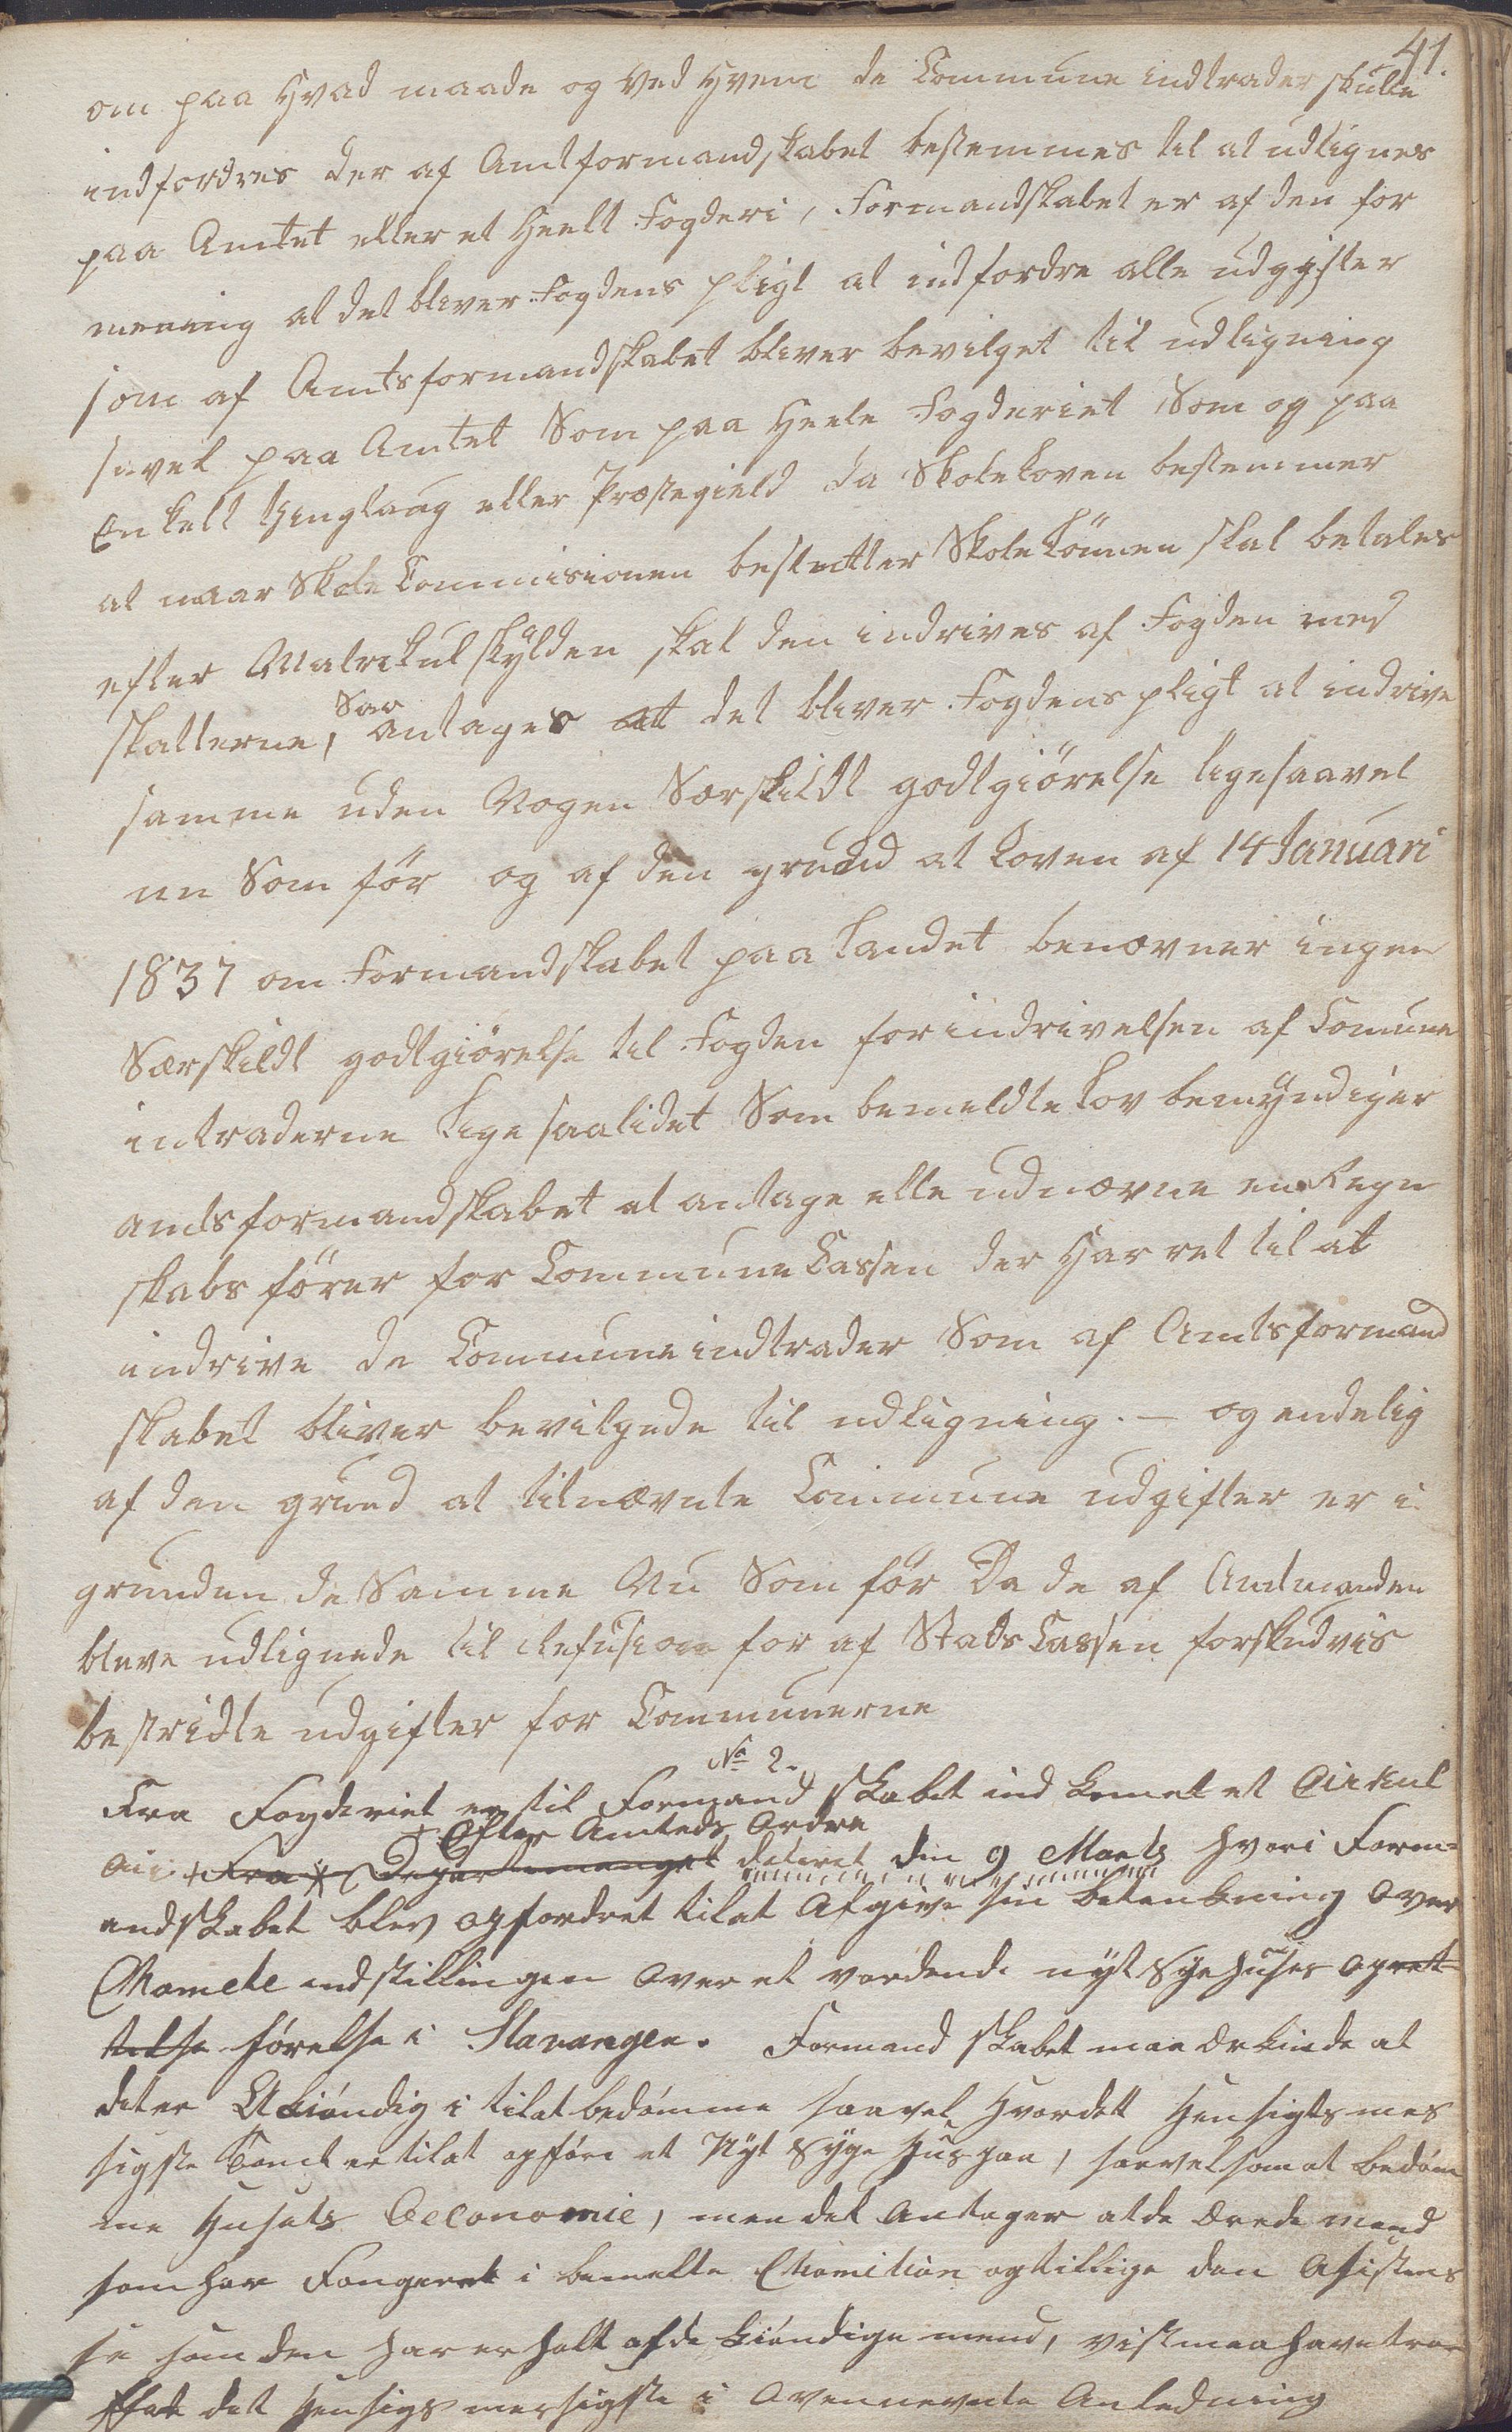 41.
om paa Hvad maade og Ved Hvem de Commune indtrader skulle
indfordres der af Amtformandskabet bestemmes til at udlignes
paa Amtet eller et Heelt Fogderi, Formandskabet er af den for
mening at det bliver Fogdens pligt at indfordre alle udgifter
som af Amtsformandskabet bliver bevilget til udligning
savel paa Amtet Som paa Heele Fogderiet Som og paa
Enkelt Thinglaug eller Præstegield da Skoleloven bestemmer
at naar Skole Commisionen beslutter Skolelönnen skal betales
efter Matrikulskylden skal den indrives af Fogden med
skatterne, Saa antages att det bliver Fogdens pligt at indrive
samme uden Nogen Særskildt godtgiörelse ligesaavel
nu Som för og af den grund at Loven af 14 Januari
1837 om Formandskabet paa Landet benævner ingen
Særskildt godtgiörelse til Fogden for indrivelsen af Comune
intraderne Lige saalidet Som bemeldte Lov bemyndiger
amtsformandskabet at antage elle udnævne en Regn
skabs förer for Commune Cassen der Har ret til at
indrive de Commune indtrader Som af Amtsformand
skabet bliver bevilgede til udligning. – og endelig
af den grund at titnævnte Commune udgifter er i
grunden de Samme Nu Som för Da de af Amtmanden
bleve udlignede til Refusion for af Stads Cassen forskudvis
bestridte udgifter for Communerne
No 2.
Fra Fogderiet er til Formand skabet ind komet et Cirkul
+ Efter Amteds Ordre
air + Fra * Departemenget dateret den 9 Marts hvori Form-
andskabet blev opfordret tilat Afgive sin betenkning over
Chomete indstillingen over et vordende nyt Sygehuses opret-
telse förelse i Stavanger. Formand skabet maa Erkiende at
det er Ukiöndig i tilat bedömme saavel Hvordett Hensigtsmes
sigste Tomt er tilat opföre et Nyt Syge Hus paa, saavelsom at bedöm
me Husets Oeconomie, men det Antager at de ærede mend
som har Fongeret i bemelte Chomition og tillige den Asistens
se som den har erholt af de kiöndige mend, vist maa have tra
ffet det Hensigsmessigste i Ovennevnte Anledning